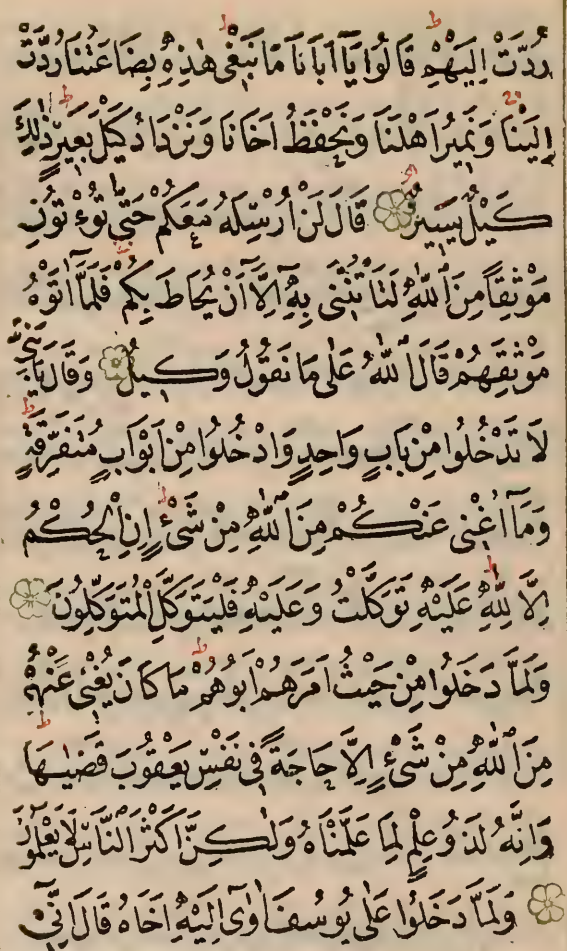 رُدَّتْ اِلَيْهِمْ قَالُوا يَٓا اَبَانَا مَا نَبْغِى هٰذِهِ بِضَاعَتُنَا رُدَّتْ
اِلَيْنَا وَنَمِيرُ اَهْلَنَا وَنَحْفَظُ اَخَانَا وَنَزْدَادُ كَيْلَ بَعِيرٍ ذٰلِكَ
كَيْلٌ يَسِيرٌ قَالَ لَنْ اُرْسِلَهُ مَعَكُمْ حَتّٰى تُؤْتُونِ
مَوْثِقًا مِنَ اللّٰهِ لَتَاْتُنَّنِى بِهِٓ اِلَّٓا اَنْ يُحَاطَ بِكُمْ فَلَمَّٓا اٰتَوْهُ
مَوْثِقَهُمْ قَالَ اللّٰهُ عَلٰى مَا نَقُولُ وَكِيلٌ وَقَالَ يَا بَنِىَّ
لَا تَدْخُلُوا مِنْ بَابٍ وَاحِدٍ وَادْخُلُوا مِنْ اَبْوَابٍ مُتَفَرِّقَةٍ
وَمَٓا اُغْنِى عَنْكُمْ مِنَ اللّٰهِ مِنْ شَىْءٍ اِنِ الْحُكْمُ
اِلَّا لِلّٰهِ عَلَيْهِ تَوَكَّلْتُ وَعَلَيْهِ فَلْيَتَوَكَّلِ الْمُتَوَكِّلُونَ
وَلَمَّا دَخَلُوا مِنْ حَيْثُ اَمَرَهُمْ اَبُوهُمْ مَا كَانَ يُغْنِى عَنْهُمْ
مِنَ اللّٰهِ مِنْ شَىْءٍ اِلَّا حَاجَةً فِى نَفْسِ يَعْقُوبَ قَضٰيهَا
وَاِنَّهُ لَذُو عِلْمٍ لِمَا عَلَّمْنَاهُ وَلٰكِنَّ اَكْثَرَ النَّاسِ لَا يَعْلَمُونَ
وَلَمَّا دَخَلُوا عَلٰى يُوسُفَ اٰوٰٓى اِلَيْهِ اَخَاهُ قَالَ اِنِّٓى